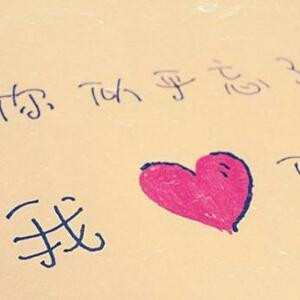 你似乎忘了
我